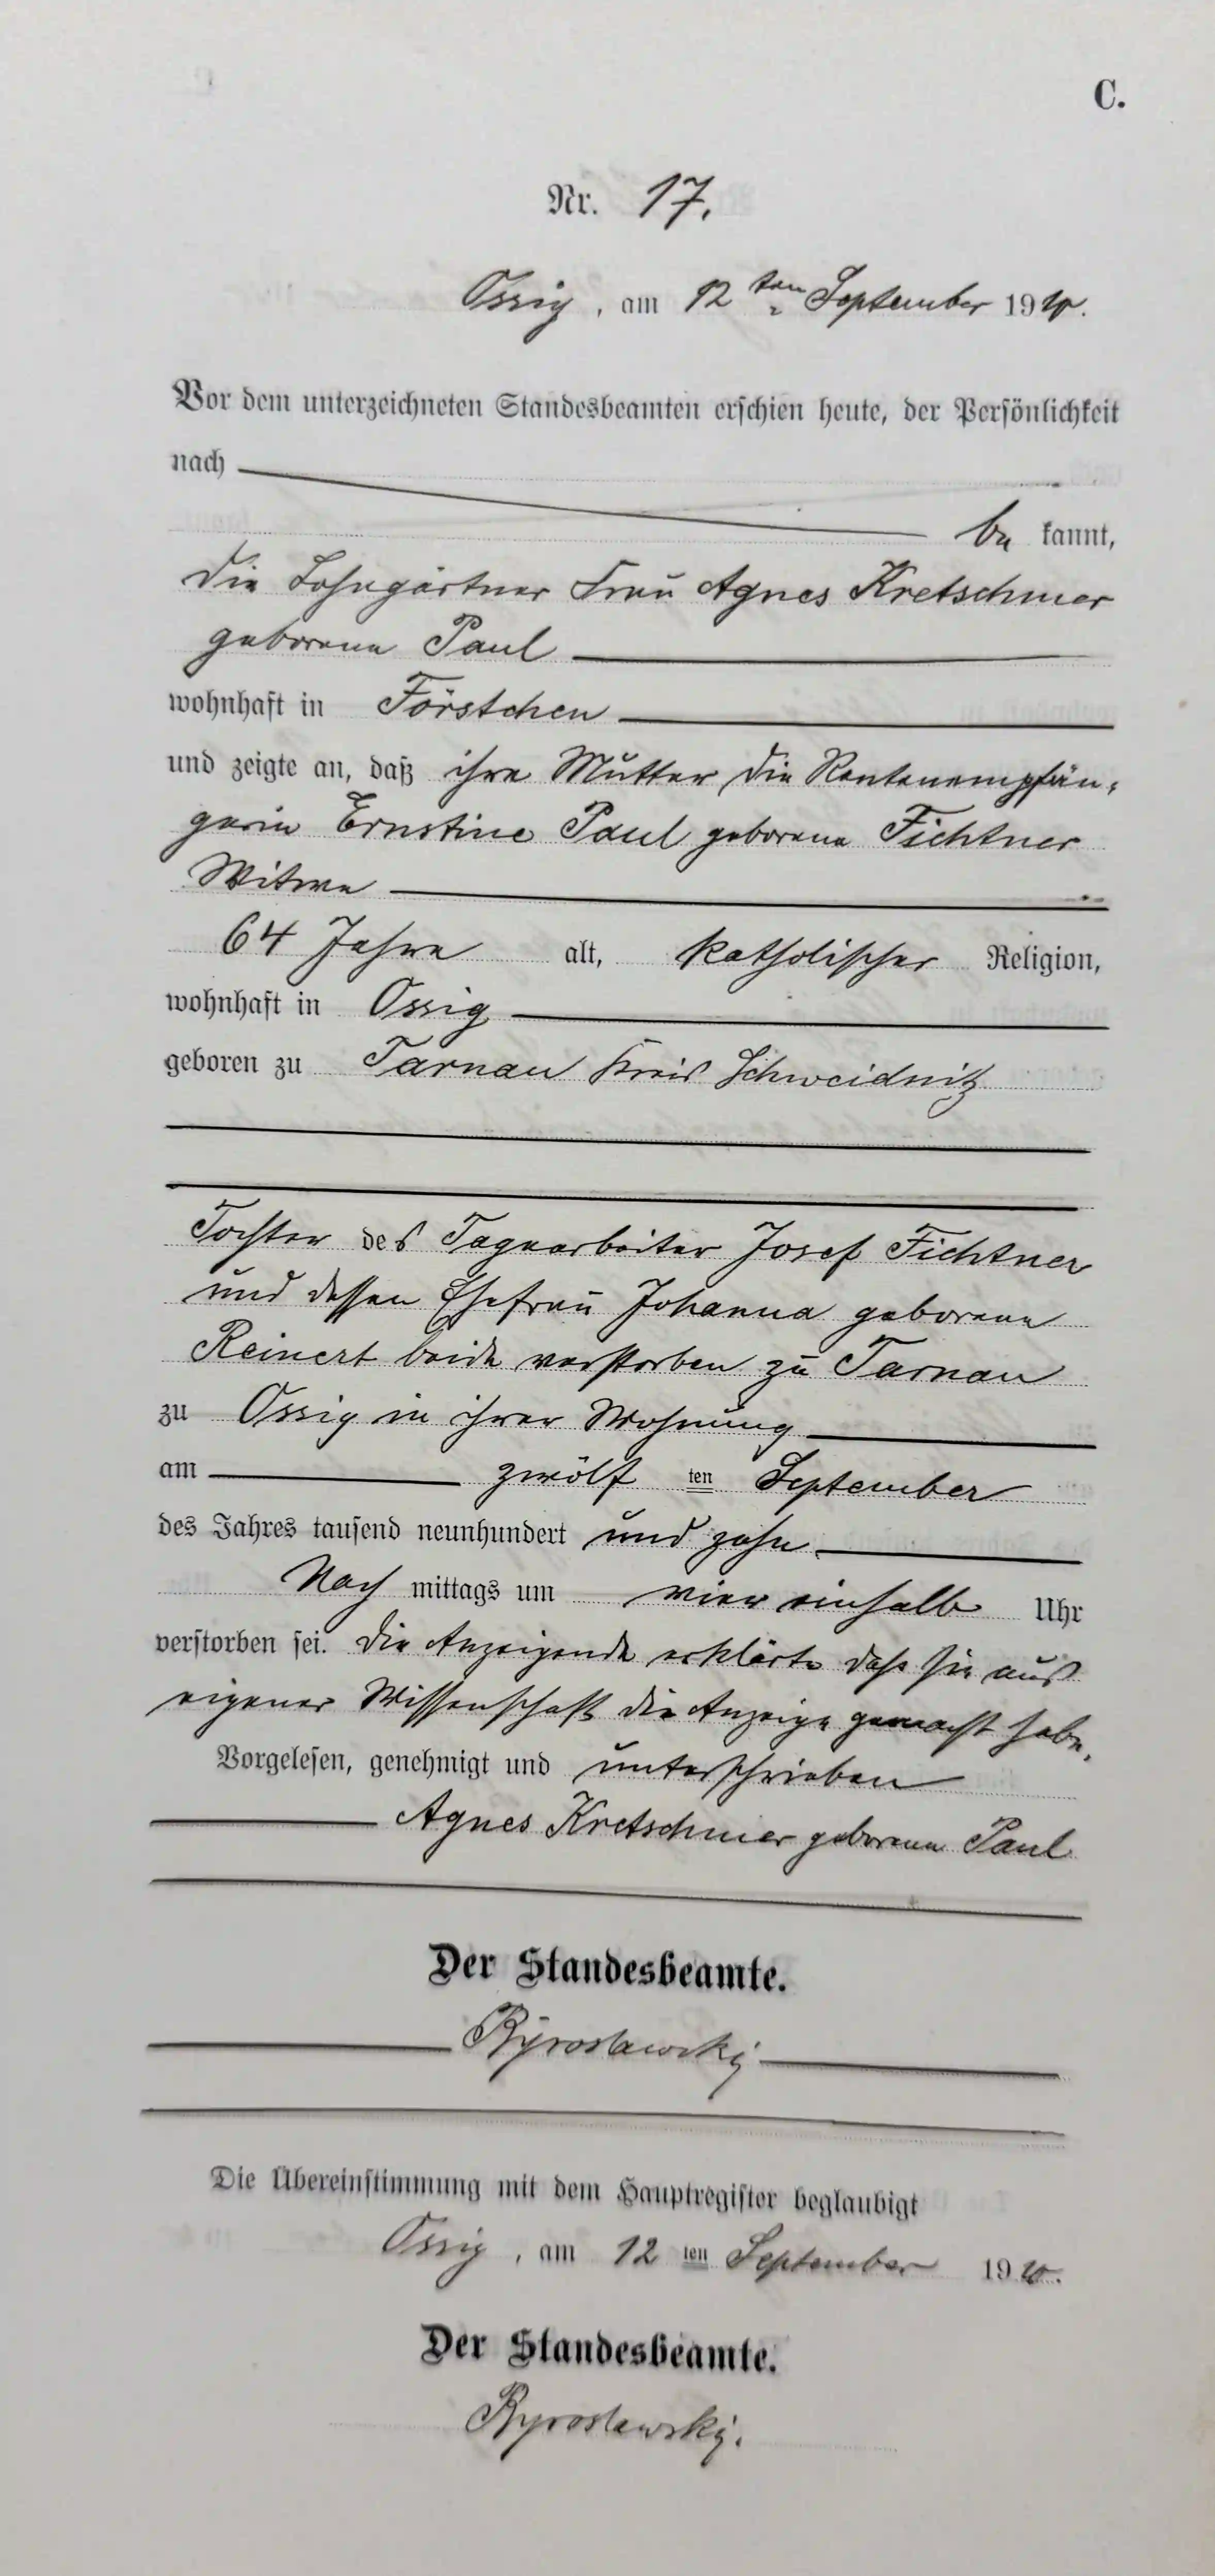 C.
Nr. 17.
Ossig, am 12ten September 1910.
Vor dem unterzeichneten Standesbeamten erschien heute, der Persönlichkeit
nach
bekannt,
die Lohngärtner Frau Agnes Kretschmer
geborene Paul
wohnhaft in Förstchen
und zeigte an, daß ihre Mutter die Rentenempfän-
gerin Ernstine Paul geborene Fichtner
Witwe
64 Jahre alt, katholischer Religion,
wohnhaft in Ossig
geboren zu Tarnau Kreis Schweidnitz
Tochter des Tagearbeiter Josef Fichtner
und dessen Ehefrau Johanna geborene
Reinert beide verstorben zu Tarnau
zu Ossig in ihrer Wohnung
am zwölf ten September
des Jahres tausend neunhundert und zehn
Nach mittags um vier einhalb Uhr
verstorben sei. Die Anzeigende erklärte daß sie aus
eigener Wissenschaft die Anzeige gemacht habe.
Vorgelesen, genehmigt und unterschrieben
Agnes Kretschmer geborene Paul
Der Standesbeamte.
Die Übereinstimmung mit dem Hauptregister beglaubigt
Ossig, am 12 ten September 1910.
Der Standesbeamte.